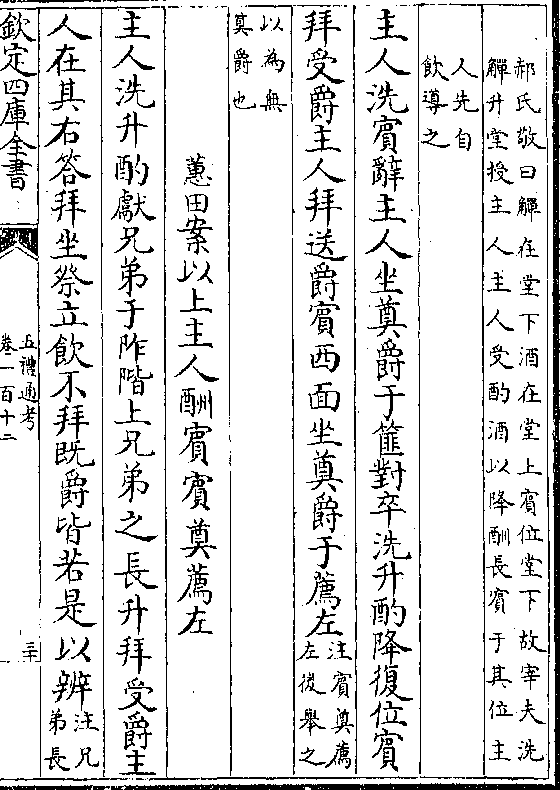 郝氏敬曰觶在堂下酒在堂上賓位堂下故宰夫洗
觶升堂授主人主人受酌酒以降酬長賓于其位主
人先自
飲導之
主人洗賓辭主人坐奠爵于篚對卒洗升酌降復位賓
拜受爵主人拜送爵賓西面坐奠爵于薦左
注賓奠薦
左後舉之
以為無
奠爵也
蕙田案以上主人酬賓賓奠薦左
主人洗升酌獻兄弟于阼階上兄弟之長升拜受爵主
人在其右答拜坐祭立飲不拜既爵皆若是以辨
注兄
弟長
欽定四庫全書
五禮通考
卷一百十二
三十